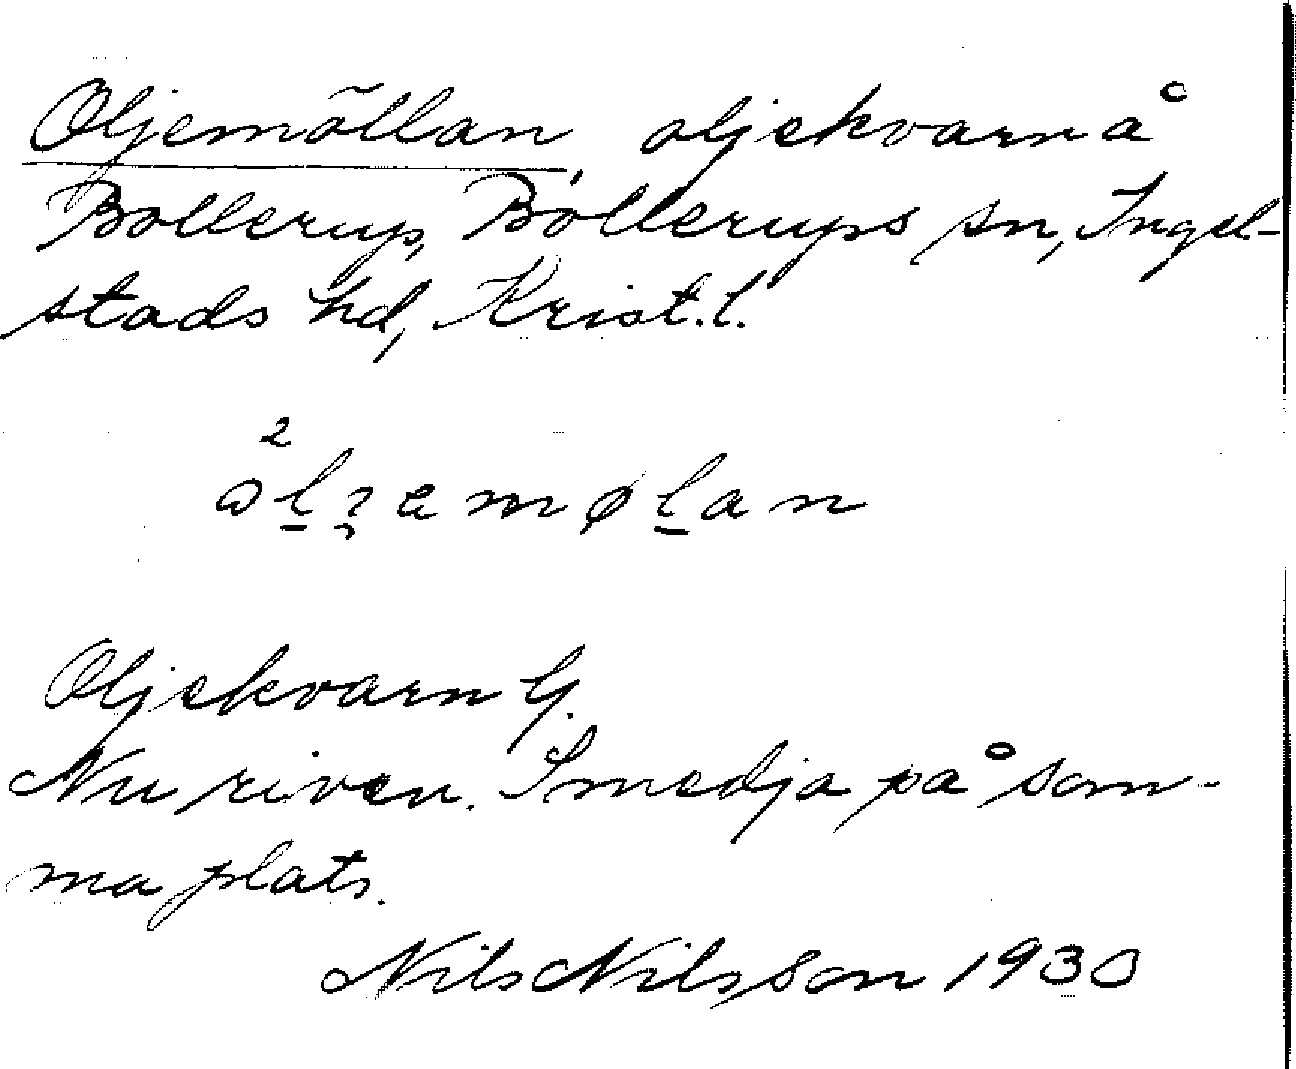 Oljemöllan, oljekvarn å
Bollerup, Bollerups sn, Ingel-
stads hd, Krist. l.
Oljekvarn G.
Nu riven. Smedja på sam-
ma plats.
Nils Nilsson 1930